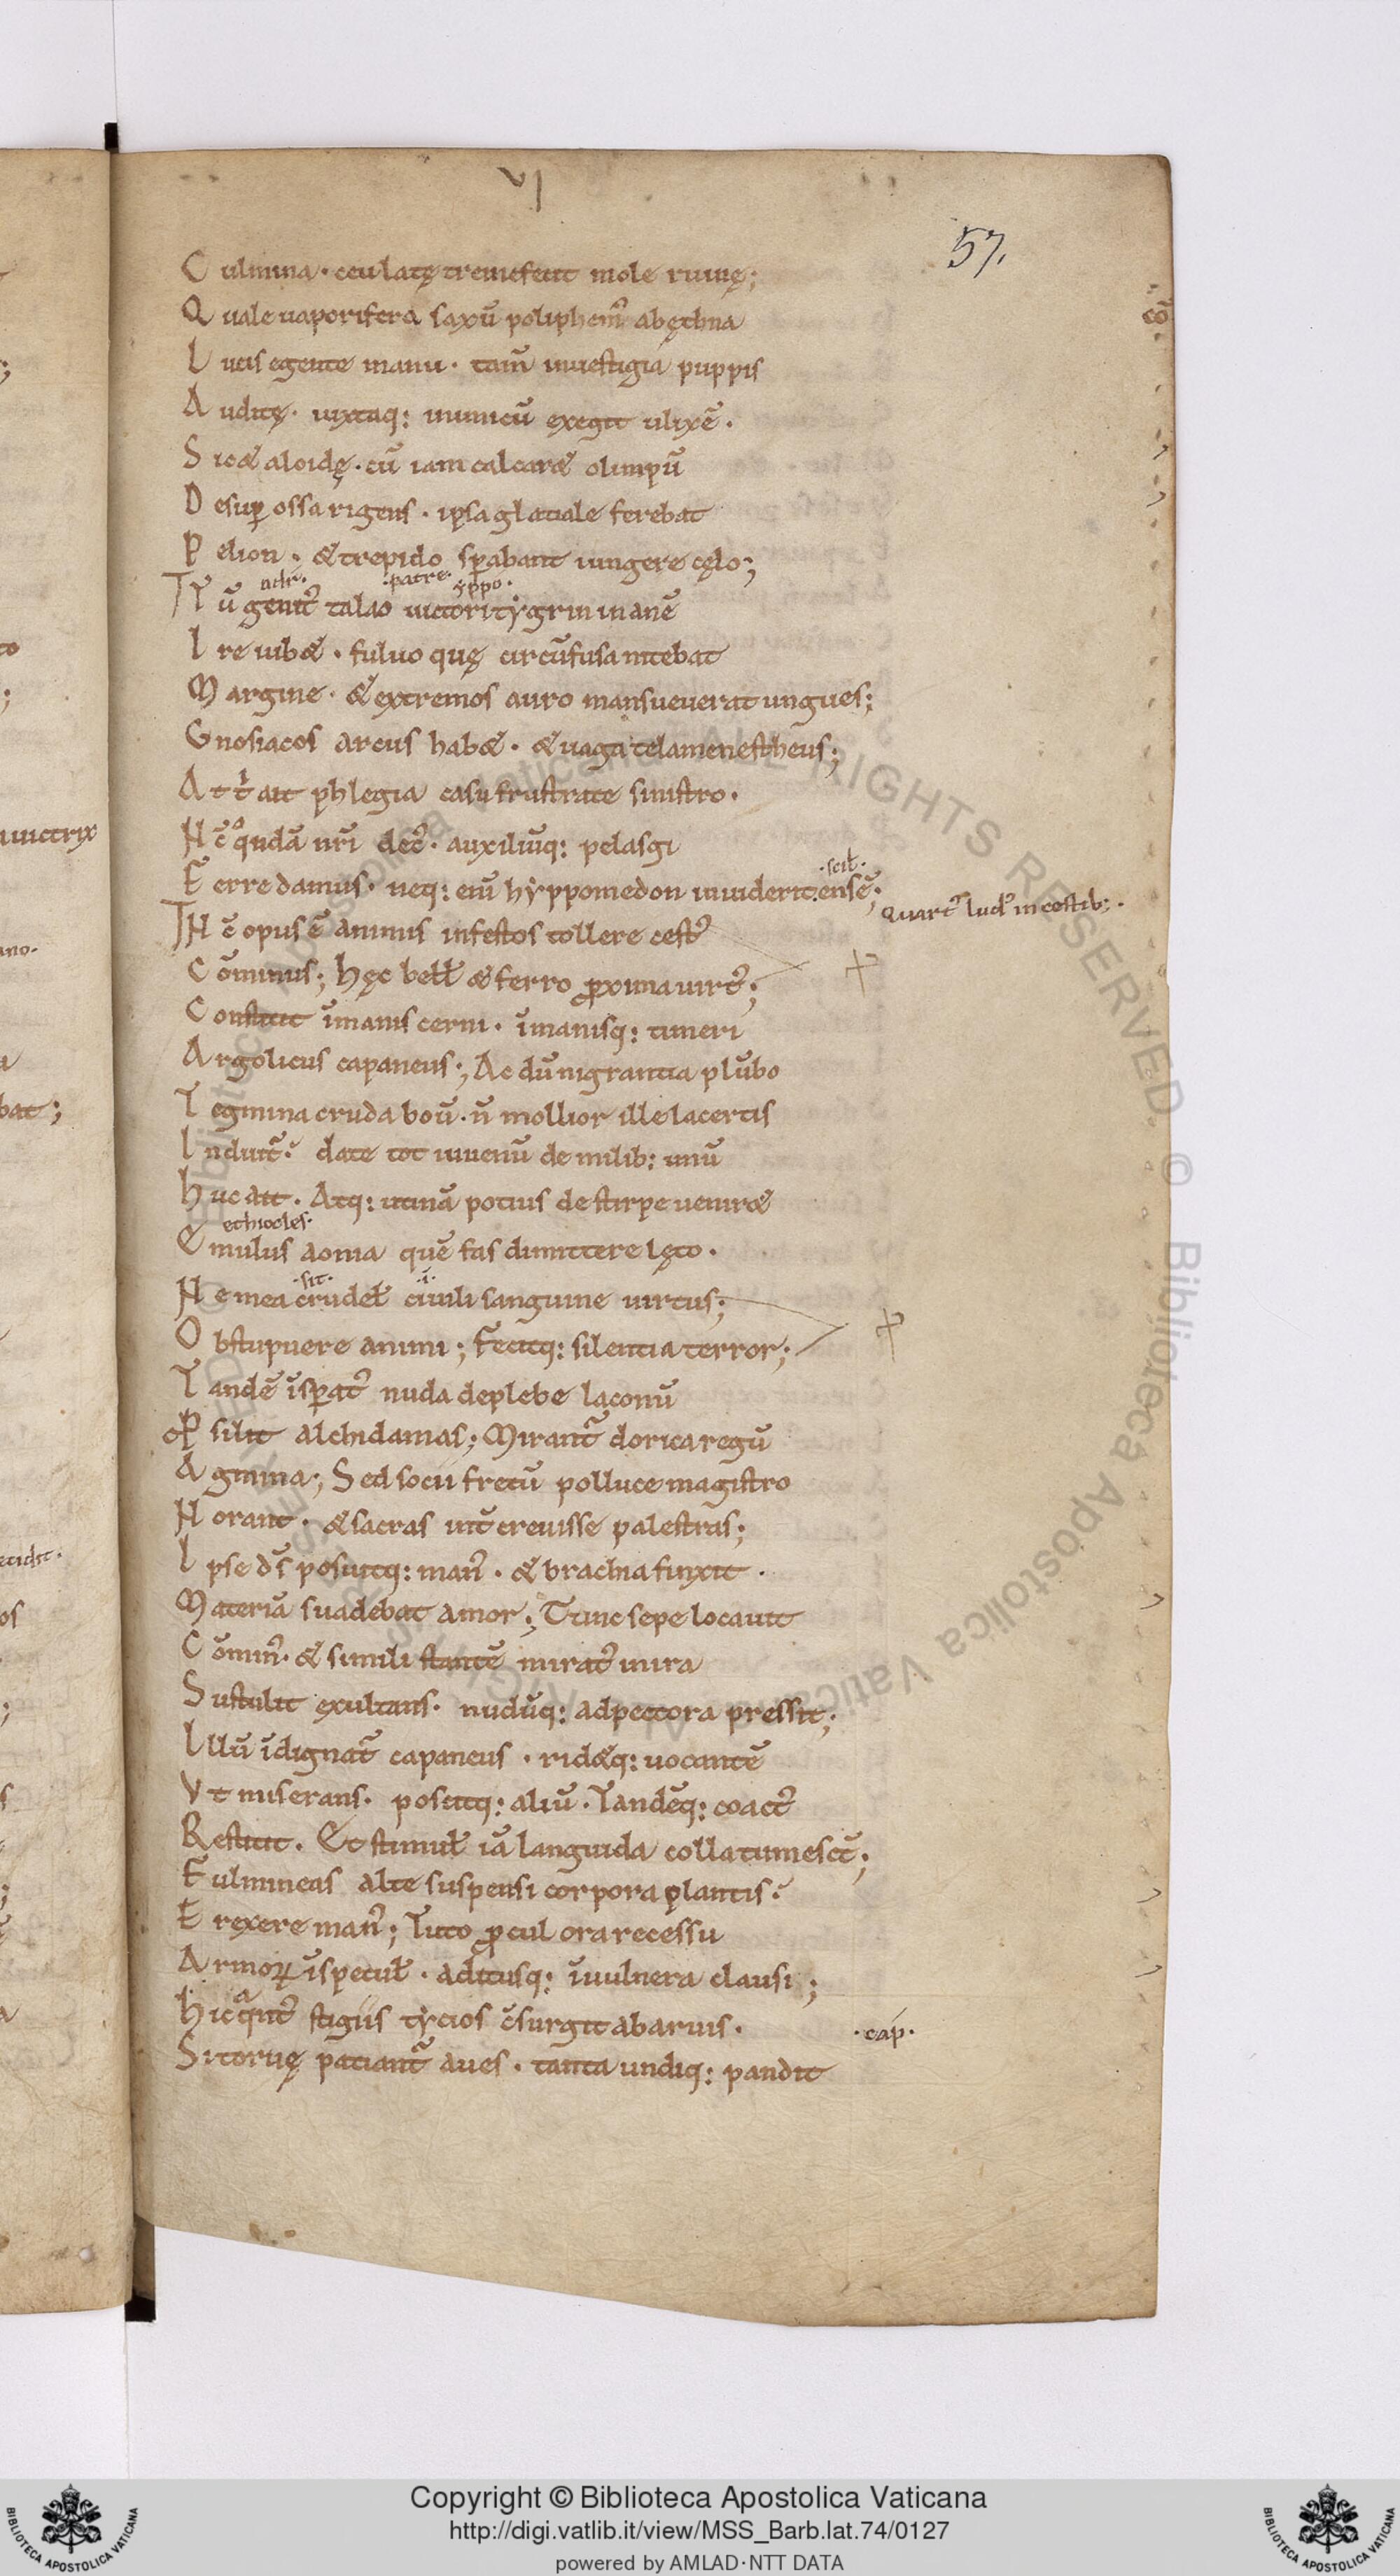 VI
57.
C ulmina · ceu latę tremefecit mole ruinę;
Q uale uaporifera saxū poliphem᷒ abęthna
L ucis egente manu · tam̄ inuestigia puppis
A uditę · iuxtaq: inimicū exegit ulixē .
S ic & aloidę · cū iam calcar& olimpū
D esuꝑ ossa rigens · ipsa glatiale ferebat
P elion · & trepido sꝑabant iungere cęlo;
·adr̄· ·patre· yppo·
T ū genit᷒ talao uictori tẏgrin inanē
I re iub& · fuluo quę circūfusa nitebat
M argine · & extremos auro mansueuerat ungues;
G nosiacos arcus hab& · & uaga tela menestheus;
A t tⁱ ait phlegia casu frustrate sinistro ·
H c̄ qͦndā nr̄i dec᷒ · auxiliūq: pelasgi
F erre damus · neq: enī hẏppomedon inuiderit ensē;
·scit·
Quart᷒ lud᷒ in cestib; ·
N c̄ opus ē animis infestos tollere cest᷒
C ōminus; hęc bell̄ & ferro ꝓxima uirt᷒;
C onstitit īmanis cerni · īmanisq: timeri
A rgolicus capaneus; Ac dū nigrantia plūbo
T egmina cruda boū · n̄ mollior ille lacertis
I nduit᷒ date tot iuuenū de milib: unū
H uc ait · Atq: utinā potius de stirpe uenir&
ethiocles·
E mulus aonia quē fas dimittere lęto ·
·sit· ·i·
N e mea crudel̄ ciuili sanguine uirtus;
O bstupuere animi; Fecitq: silentia terror;
T andē īsꝑat᷒ nuda deplebe laconū
P ꝓsilit alchidamas; Mirant᷒ dorica regū
A gmina; Sed socii fretū polluce magistro
N orant · & sacras int̄ creuisse palestras;
I pse ds̄ posuitq: man᷒ · & brachia finxit ·
M ateriā suadebat amor; Tunc sepe locauit
C ōmin᷒ · & simili stantē mirat᷒ inira
S ustulit exultans · nudūq: adpectora pressit;
I llū īdignat᷒ capaneus · rid&q: uocantē
V t miserans · poscitq: aliū · Tandēq: coact᷒
R estitit · Et stimul̄ iā languida colla tumesct̄;
F ulmineas alte suspensi corpora plantis
E rexere man᷒; Tuto ꝓcul ora recessu
A rmoꝝ īspecul̄ · aditusq: īuulnera clausi;
H ic qͣnt᷒ stigiis tẏcios c̄surgit abaruis ·
·cap·
S i toruę patiant᷒ aues · tanta undiq: pandit
Copyright © Biblioteca Apostolica Vaticana
http://digi.vatlib.it/view/MSS_Barb.lat.74/0127
powered by AMLAD·NTT DATA